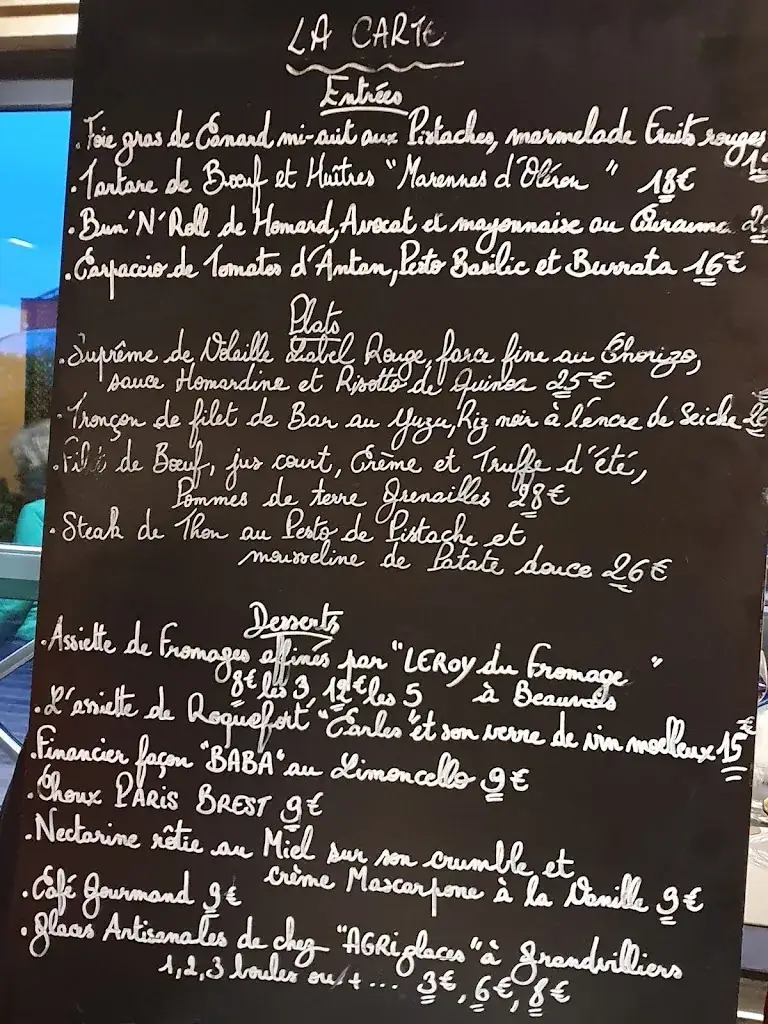 LA CARTE
Entrées
. Foie gras de Canard mi-cuit aux Pistaches, marmelade Fruits rouges
. Tartare de Bœuf et Huîtres "Marennes d'Oléron" 18€
. Bun'N'Roll de Homard, Avocat et mayonnaise au
. Carpaccio de Tomates d'Antan, Pesto Basilic et Burrata 16€
Plats
. Suprême de Volaille Label Rouge, farce fine au Chorizo,
sauce Homardine et Risotto de Quinoa 25€
. Tronçon de filet de Bar au Yuzu, Riz noir à l'encre de Seiche
. Filet de Bœuf, jus court, Crème et Truffe d'été,
Pommes de terre Grenailles 28€
. Steak de Thon au Pesto de Pistache et
mousseline de Patate douce 26€
Desserts
. Assiette de Fromages affinés par "LEROY du Fromage"
8€ les 3 12€ les 5 à Beauvais
. L'assiette de Roquefort "Carles" et son verre de vin moelleux 15€
. Financier façon "BABA" au Limoncello 9€
. Choux PARIS BREST 9€
. Nectarine rôtie au Miel sur son crumble et
crème Mascarpone à la Vanille 9€
. Café Gourmand 9€
. Glaces Artisanales de chez "AGRiglaces" à Grandvilliers
1, 2, 3 boules ou + ... 3€, 6€, 8€